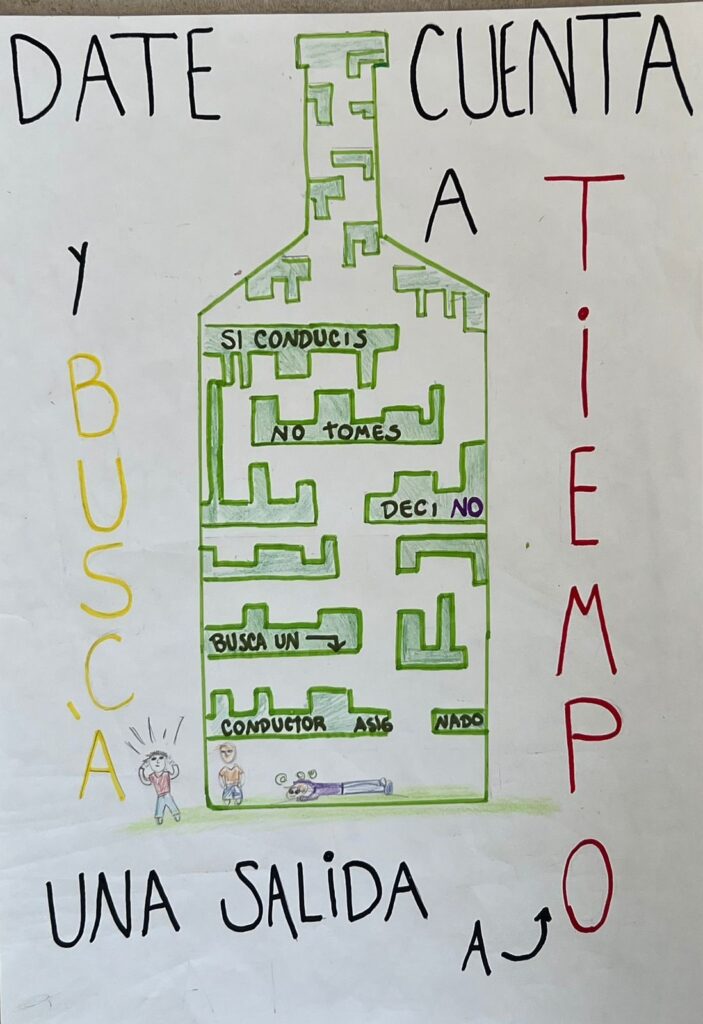 DATE CUENTA
A
TiEMPO
y
BUSCÀ
UNA SALiDA
A
SI CONDUCIS
NO TOMES
DECI NO
BUSCA UN →
CONDUCTOR ASIG NADO